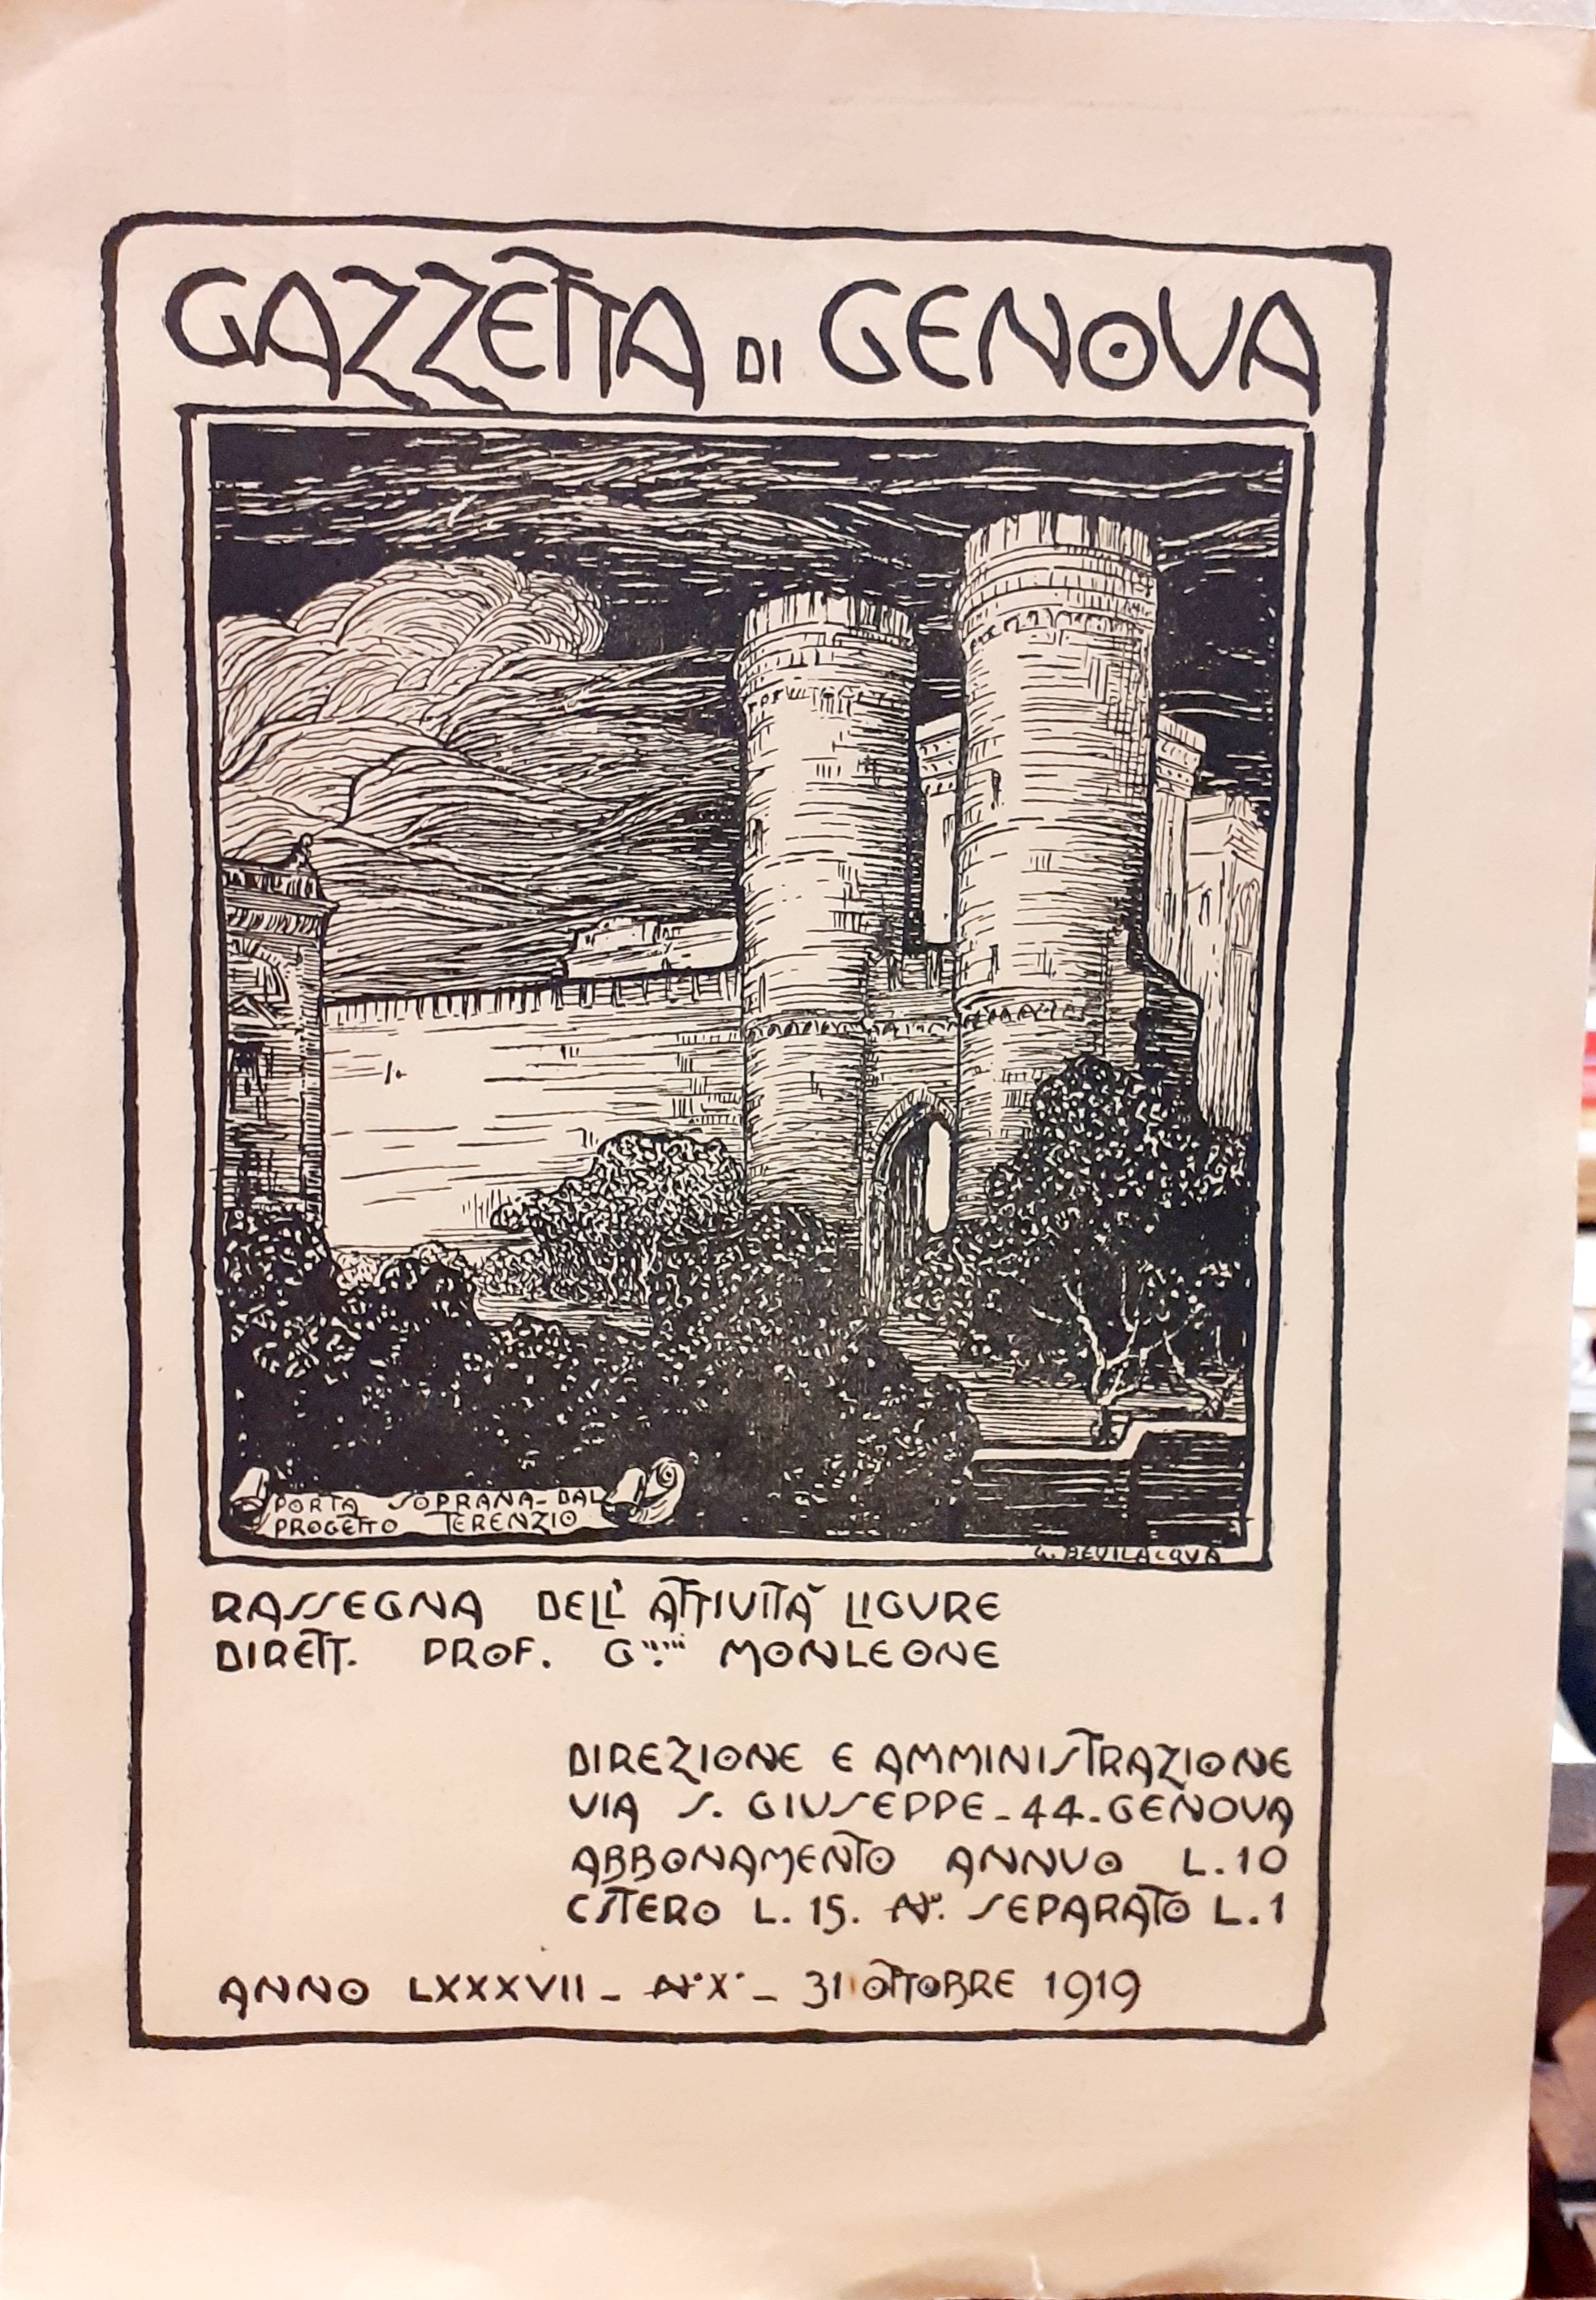 GAZZETTA DI GENOVA
PORTA SOPRANA - DAL
PROGETTO TERENZIO
G. BEVILACQUA
RASSEGNA DELL'ATTIVITÀ LIGURE
DIRETT. PROF. G. MONLEONE
DIREZIONE E AMMINISTRAZIONE
VIA S. GIUSEPPE - 44 - GENOVA
ABBONAMENTO ANNUO L.10
ESTERO L. 15. N°. SEPARATO L.1
ANNO LXXXVII - N° X° - 31 OTTOBRE 1919